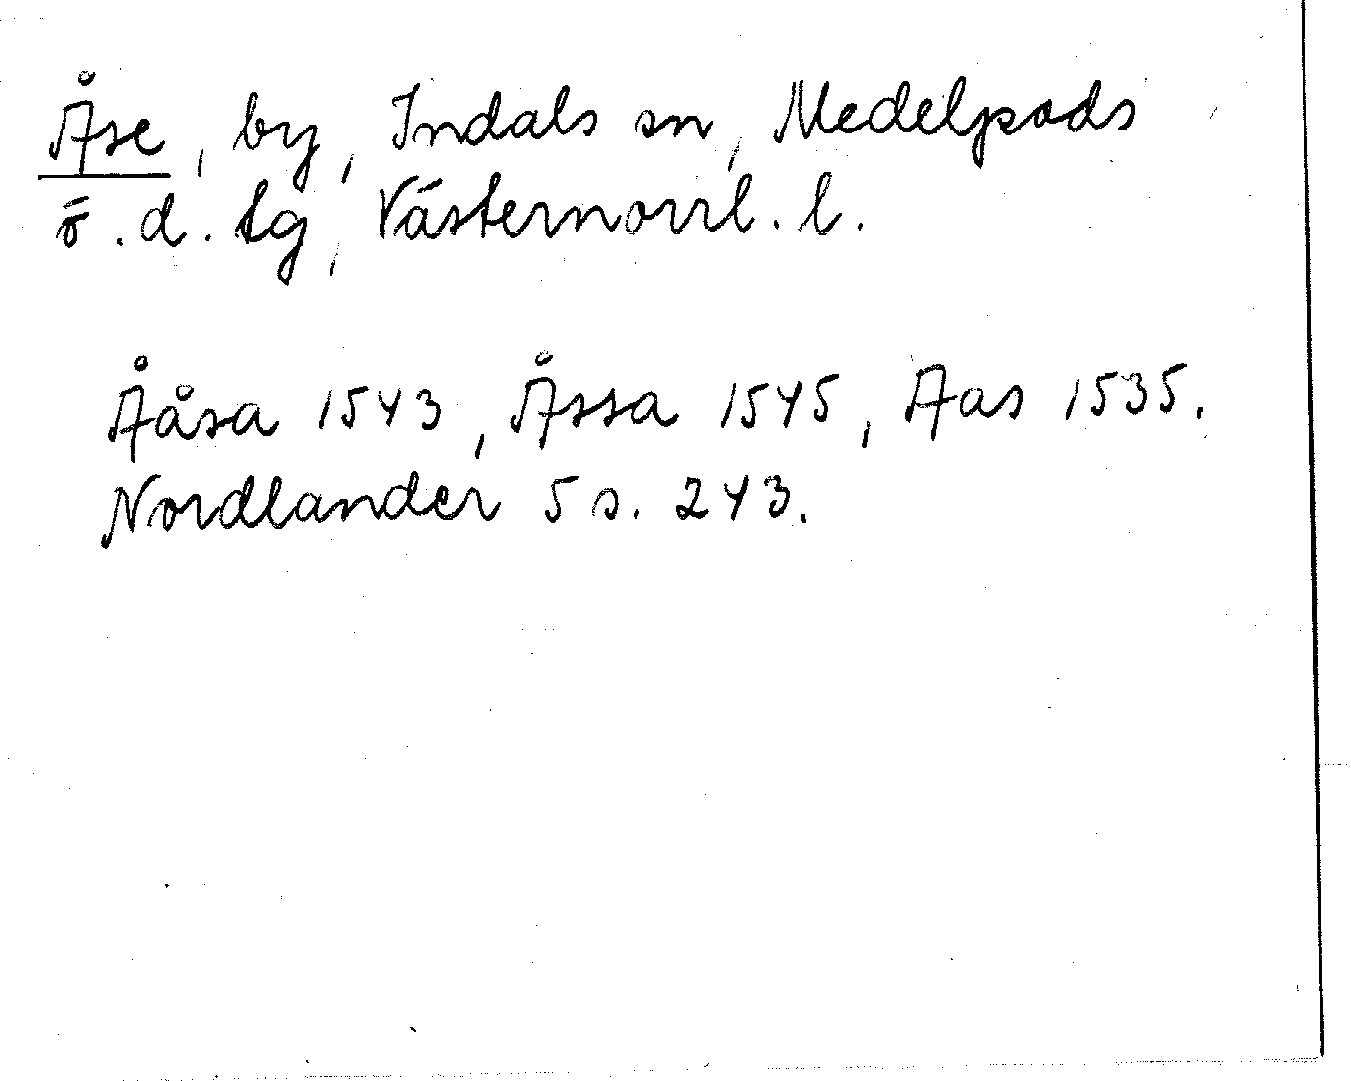 Åse, by, Indals sn, Medelpads
ö.d.tg, Västernorrl.l.
Ååsa 1543, Åssa 1545, Aas 1535.
Nordlander 5 s. 243.